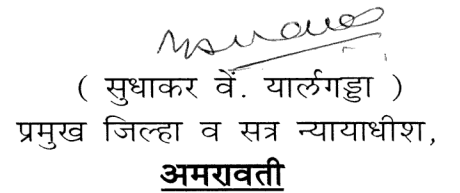 ( सुधाकर वें. यार्लगड्डा )
प्रमुख जिल्हा व सत्र न्यायाधीश,
अमरावती